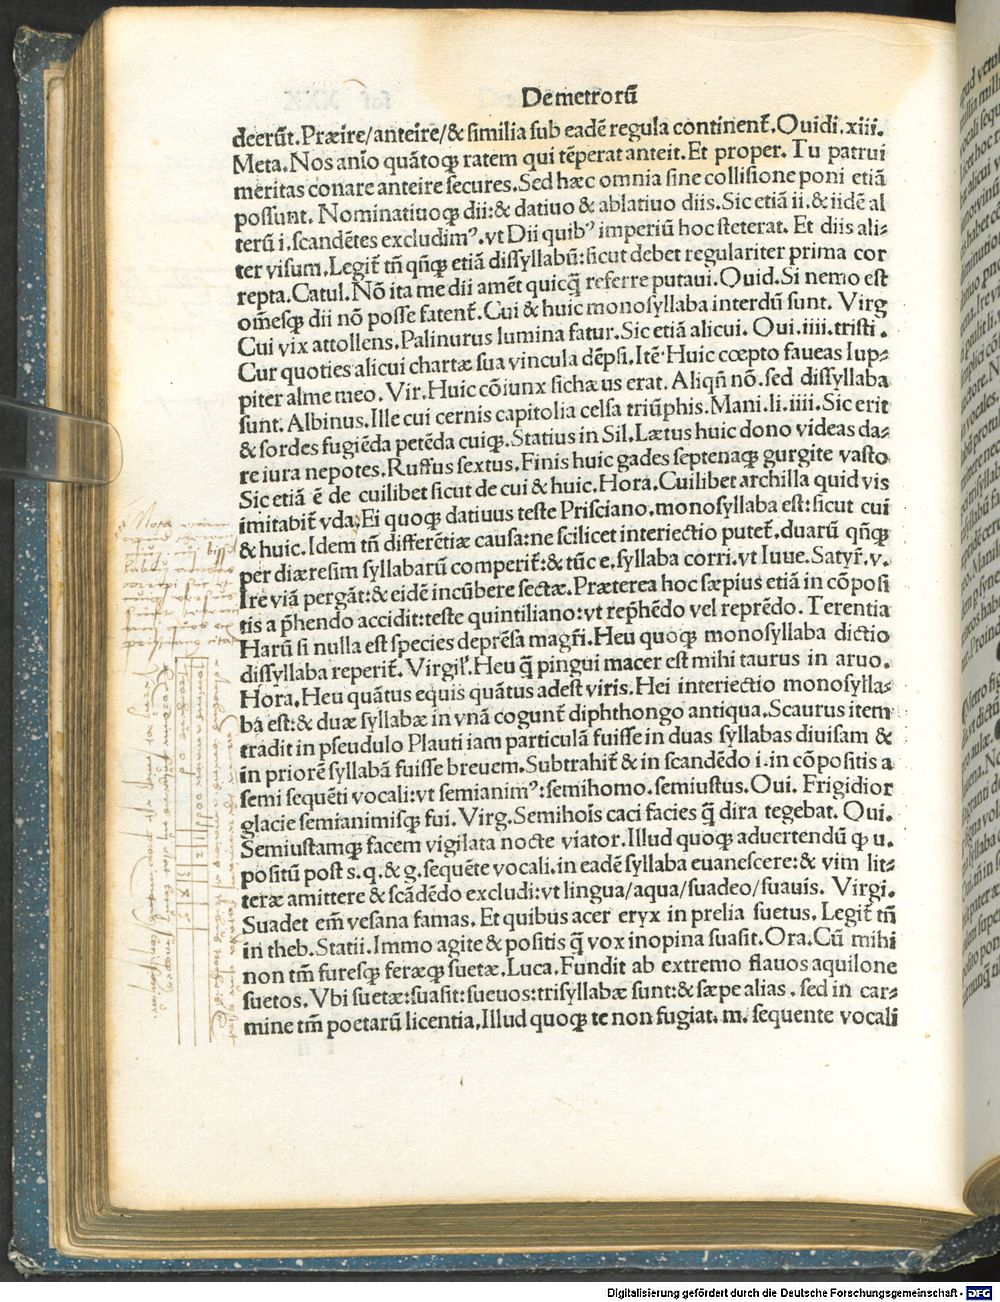 De metrorū
deerūt. Præire/anteire/& similia sub eadē regula continent᷑. Ouidi. xiii.
Meta. Nos anīo quātoqꝫ ratem qui tēperat anteit. Et proper. Tu patrui
meritas conare anteire secures. Sed hæc omnia sine collisione poni etiā
possunt. Nominatiuoqꝫ dii: & datiuo & ablatiuo diis. Sic etiā ii. & iidē al
terū i. scandētes excludimꝰ. vt Dii quibꝰ imperiū hoc steterat. Et diis ali⸗
ter visum. Legit᷑ tñ qñqꝫ etiā dissyllabū: sicut debet regulariter prima cor
repta. Catul. Nō ita me dii amēt quicq̄ referre putaui. Ouid. Si nemo est
om̄esqꝫ dii nō posse fatent᷑. Cui & huic monosyllaba interdū sunt. Virg
Cui vix attollens. Palinurus lumina fatur. Sic etiā alicui. Oui. iiii. tristi.
Cur quoties alicui chartæ sua vincula dēpsi. Itē. Huic cœpto faueas Iup⸗
piter alme meo. Vir. Huic cōiunx sichæus erat. Aliqñ nō. sed dissyllaba
sunt. Albinus. Ille cui cernis capitolia celsa triūphis. Mani. li. iiii. Sic erit
& sordes fugiēda petēda cuiqꝫ. Statius in Sil. Lætus huic dono videas da⸗
re iura nepotes. Ruffus sextus. Finis huic gades septenaqꝫ gurgite vasto
Sic etiā ē de cuilibet sicut de cui & huic. Hora. Cuilibet archilla quid vis
imitabit᷑ vda. Ei quoqꝫ datiuus teste Prisciano. monosyllaba est: sicut cui
& huic. Idem tñ differētiæ causa: ne scilicet interiectio putet᷑. duarū qñqꝫ
per diæresim syllabarū comperit᷑: & tūc e. syllaba corri. vt Iuue. Satyr᷑. v.
Ire viā pergāt: & eidē incūbere sectæ. Præterea hoc sæpius etiā in cōposi
tis a p̄hendo accidit: teste quintiliano: vt rep̄hēdo vel reprēdo. Terentia
Harū si nulla est species deprēsa magr̄i. Heu quoqꝫ monosyllaba dictio
dissyllaba reperit᷑. Virgil'. Heu q̄ pingui macer est mihi taurus in aruo.
Hora. Heu quātus equis quātus adest viris. Hei interiectio monosylla⸗
ba est: & duæ syllabæ in vnā cogunt᷑ diphthongo antiqua. Scaurus item
tradit in pseudulo Plauti iam particulā fuisse in duas syllabas diuisam &
in priorē syllabā fuisse breuem. Subtrahit᷑ & in scandēdo i. in cōpositis a
semi sequēti vocali: vt semianimꝰ: semihomo. semiustus. Oui. Frigidior
glacie semianimisqꝫ fui. Virg. Semihoīs caci facies q̄ dira tegebat. Oui.
Semiustamqꝫ facem vigilata nocte viator. Illud quoqꝫ aduertendū ꝙ u.
positū post s. q. & g. sequēte vocali. in eadē syllaba euanescere: & vim lit⸗
teræ amittere & scādēdo excludi: vt lingua/aqua/suadeo/suauis. Virgi.
Suadet em̄ vesana famas. Et quibus acer eryx in prelia suetus. Legit᷑ tñ
in theb. Statii. Immo agite & positis q̄ vox inopina suasit. Ora. Cū mihi
non tm̄ furesqꝫ feræqꝫ suetæ. Luca. Fundit ab extremo flauos aquilone
suetos. Vbi suetæ: suasit: sueuos: trisyllabæ sunt: & sæpe alias. sed in car⸗
mine tm̄ poetarū licentia. Illud quoqꝫ te non fugiat. m. sequente vocali
Digitalisierung gefördert durch die Deutsche Forschungsgemeinschaft - DFG